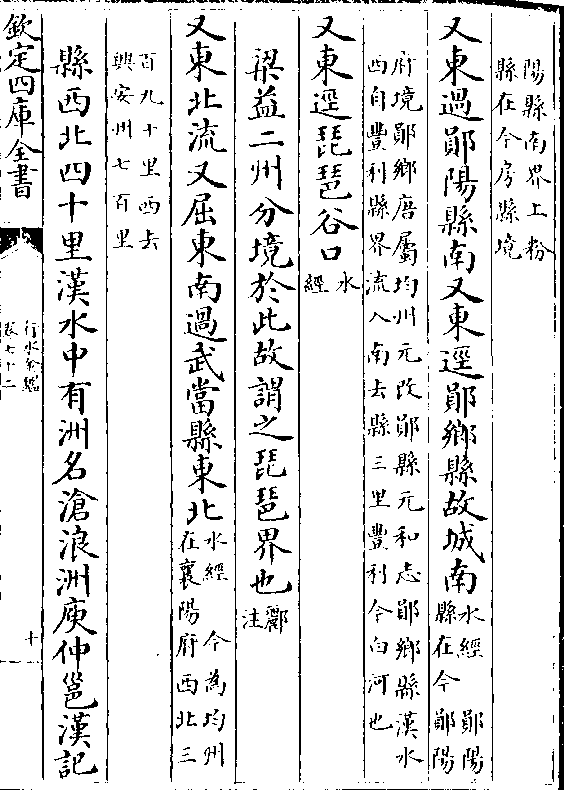 陽縣南界上粉
縣在今房縣境
又東過鄖陽縣南又東逕鄖鄉縣故城南水經　鄖陽
縣在今　鄖陽
府境鄖鄉唐屬均州元改鄖縣元和志鄖鄉縣漢水
西自豐利縣界流入南去縣三里豐利今白河也
又東逕琵琶谷口水
經
梁益二州分境於此故謂之琵琶界也酈
注
又東北流又屈東南過武當縣東北水經　今為均州
在襄陽府西北三
百九十里西去
興安州七百里
縣西北四十里漢水中有洲名滄浪洲庾仲邕漢記
欽定四庫全書
行水金鑑
卷七十二
十